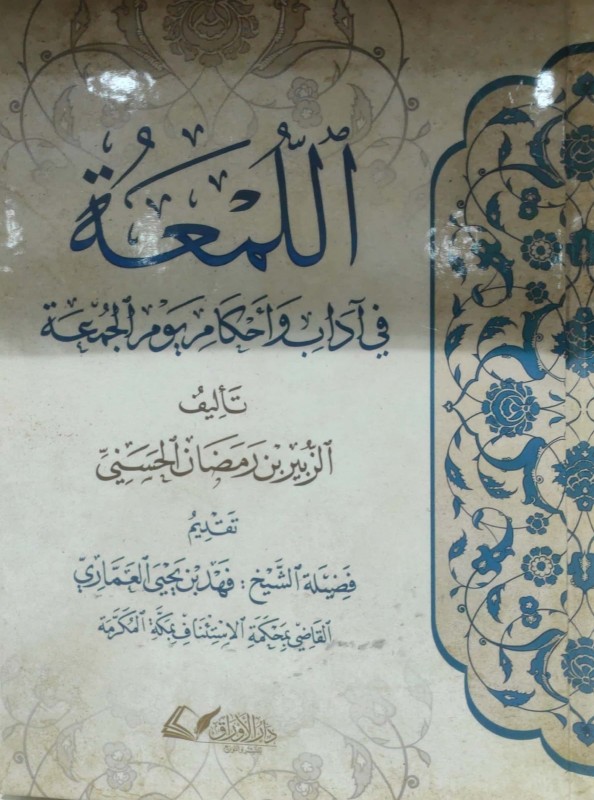 اللُّمعَةُ
في آدَابِ وَأحْكَامِ يَومِ الجُمُعَة
تَأليفُ
الزُّبَيرِ بن رَمَضَان الحَسَنِيِّ
تَقديمُ
فَضِيلَة الشَّيْخ : فَهَد بن يَحْيَى العَمَّارِي
القَاضِي بِمَحكَمَةِ الاسْتِئنَافِ بِمَكَّةَ المُكَرَّمَة
دار الأوراق
للنشر والتوزيع